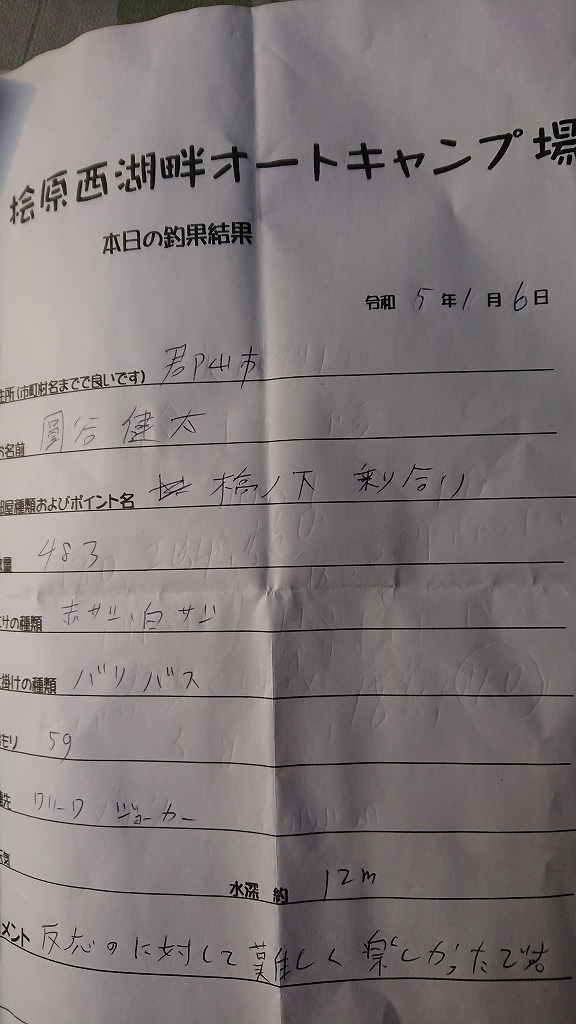 桧原西湖畔オートキャンプ場
本日の釣果結果
令和 5年1月6日
住所(市町村名までで良いです) 郡山市
お名前 圓谷 健太
小屋種類およびポイント名 橋ノ下 乗り合い
数量 483
エサの種類 赤サシ、白サシ
仕掛けの種類 バリバス
おもり 5g
穂先 ワリーワ ジョーカー
天気 水深 約 12m
コメント 反応のに対して難しく楽しかったです